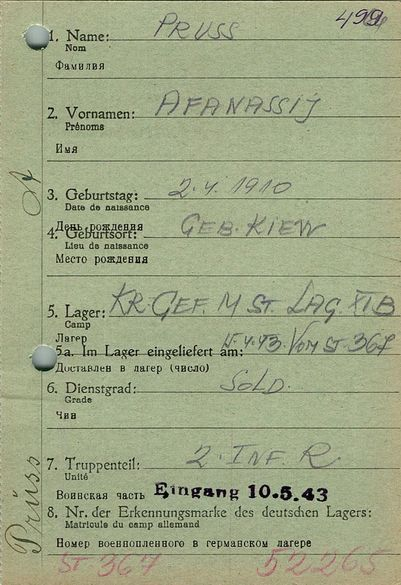 1. Name: PRUSS
Nom
Фамилия
2. Vornamen: AFANASSIJ
Prénoms
Имя
3. Geburtstag: 2.4.1910
Date de naissance
День рождения
4. Geburtsort: GEB. KIEW
Lieu de naissance
Место рождения
5. Lager: KR. GEF. M ST. LAG. XI B
Camp
Лагер
5a. Im Lager eingeliefert am: 4.43. VOM ST. 367
Доставлен в лагер (число)
6. Dienstgrad: SOLD.
Grade
Чин
7. Truppenteil: 2. INF. R
Unité
Воинская часть Eingang 10.5.43
8. Nr. der Erkennungsmarke des deutschen Lagers:
Matricule du camp allemand
Номер военнопленного в германском лагере
ST 367 52265
Prüss A